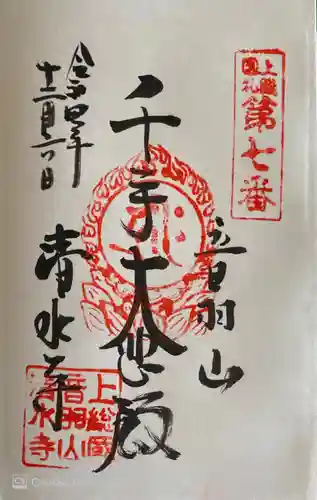 上総国札
第七番
音羽山
千手大悲殿
令和四年
十二月二日
清水寺
上総国
音羽山
清水寺